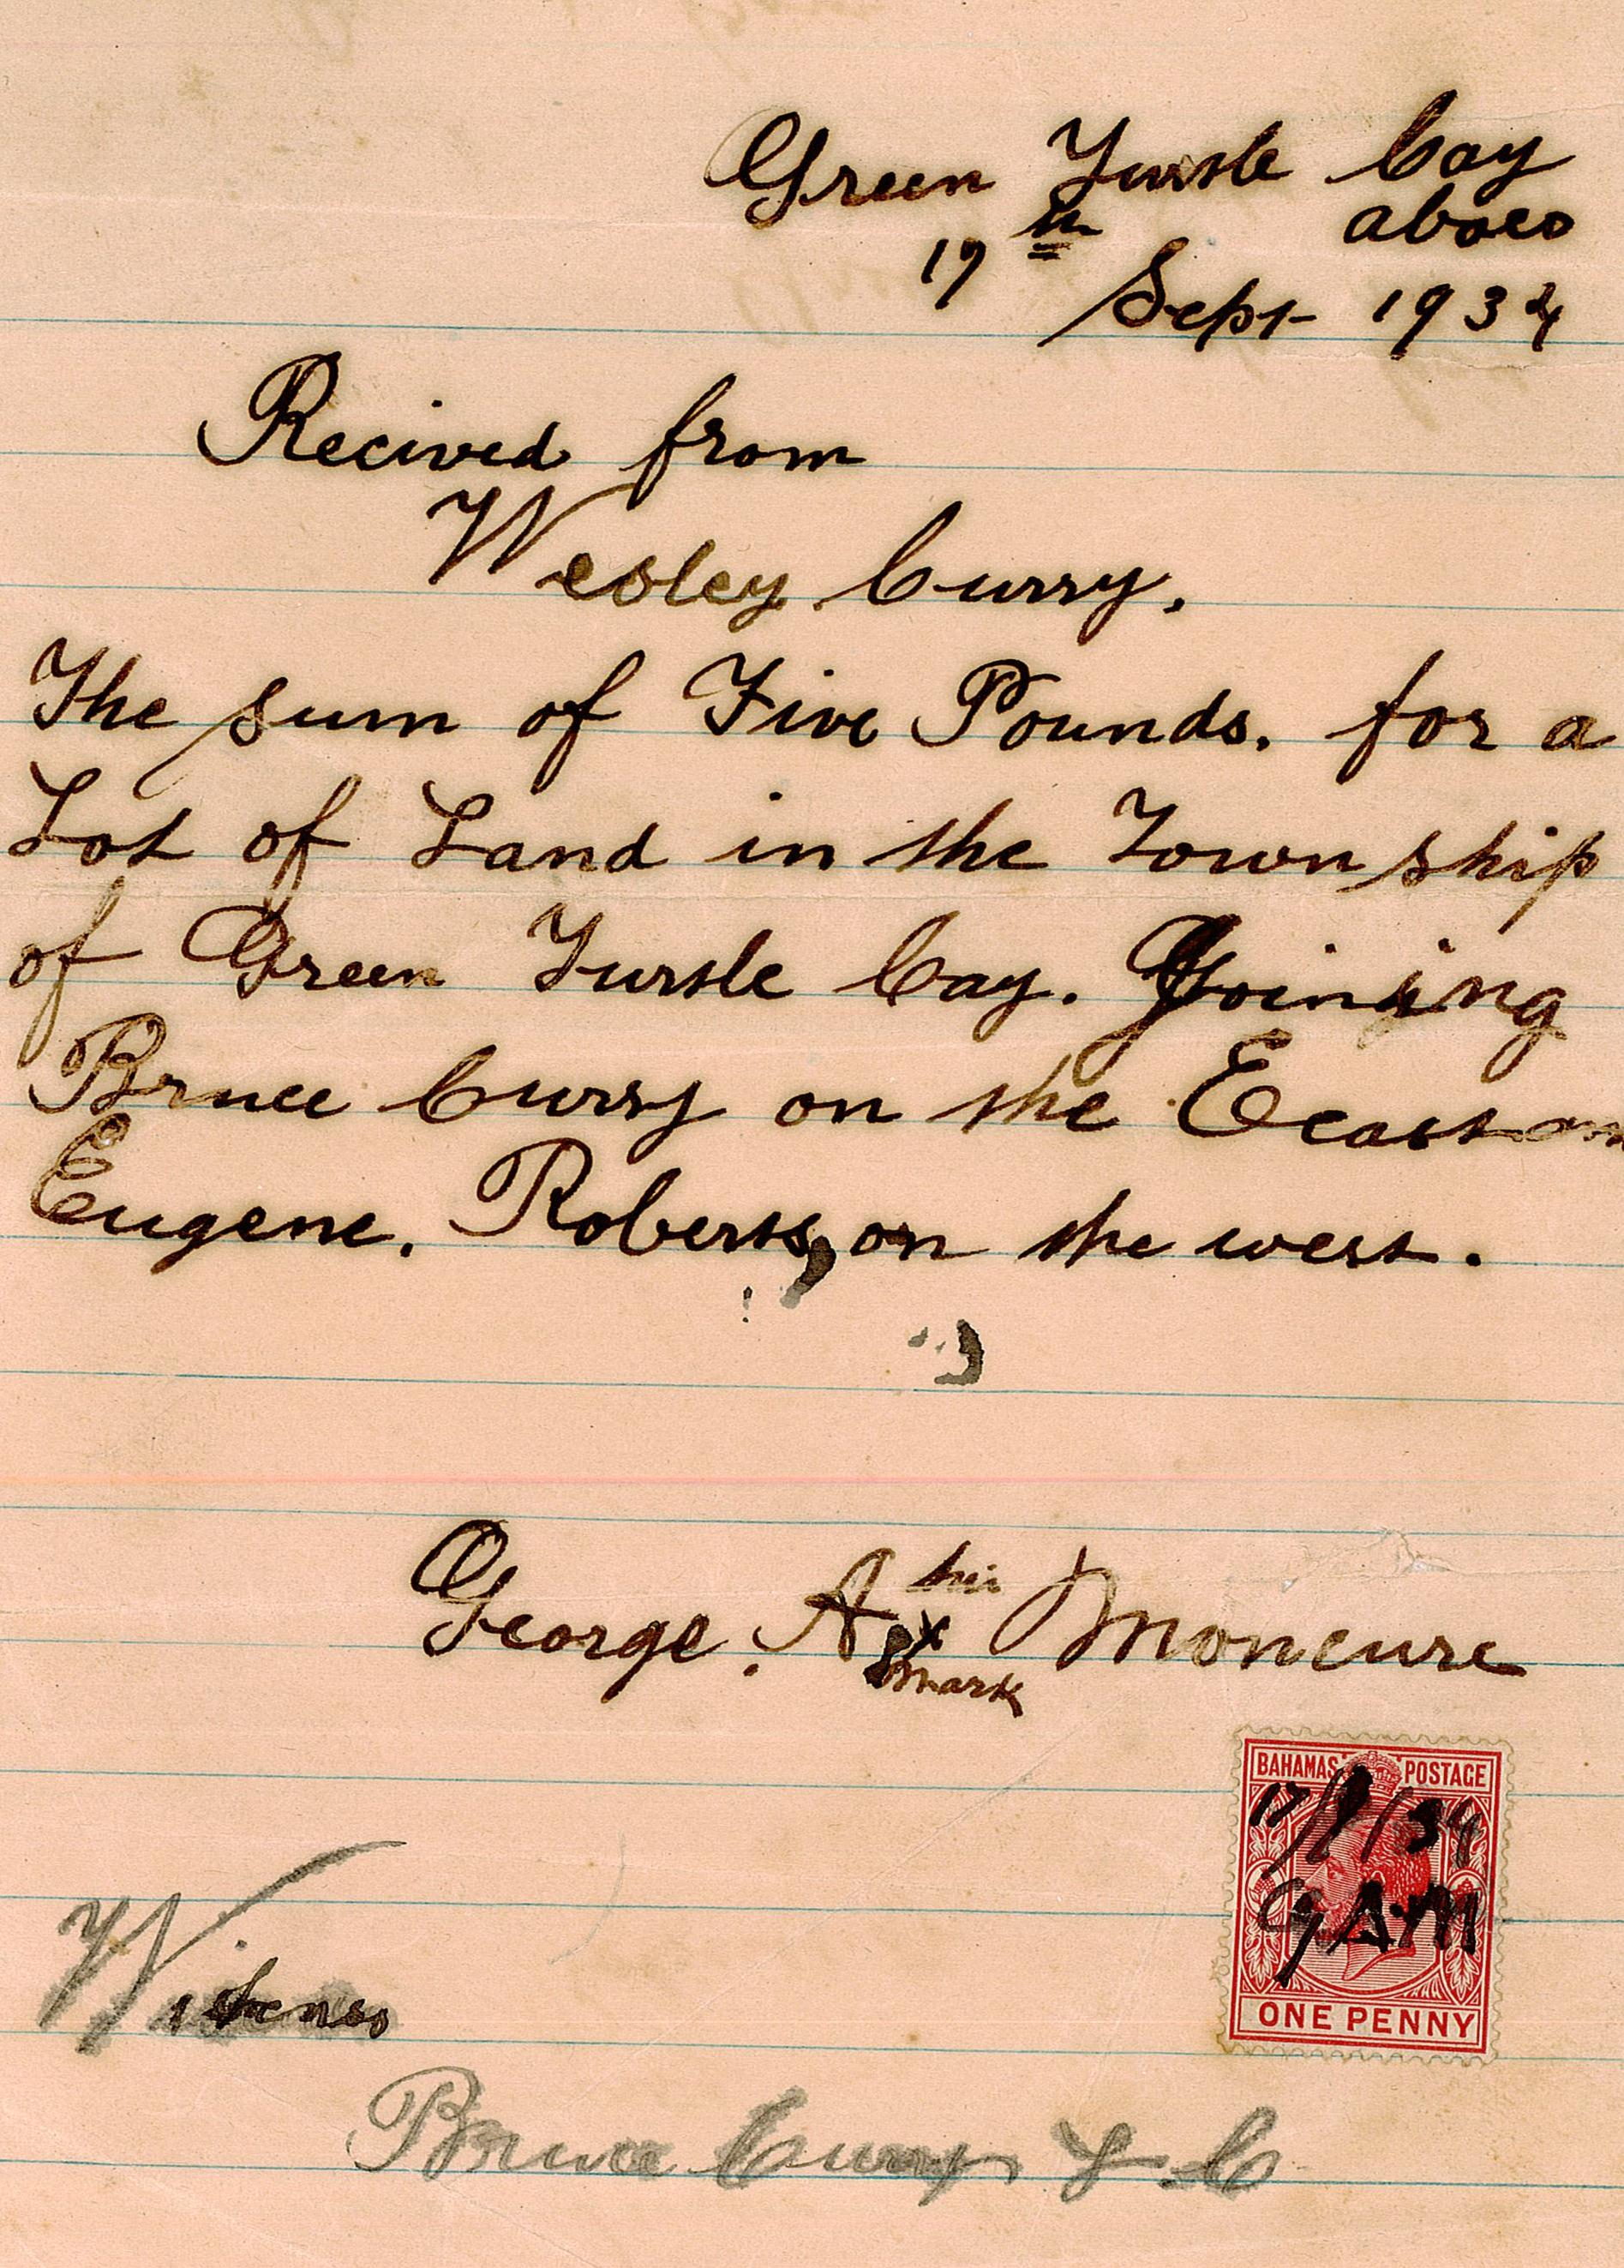 Green Turtle Cay
abaco
17th
Sept 1934
Recived from
Wesley Curry.
The sum of Five Pounds. for a
Lot of Land in the Township
of Green Turtle Cay. Joining
Bruce Curry on the Eeast an
Eugene. Roberts, on the west.
his
George. A x Moncure
mark
BAHAMAS POSTAGE
17/9/34
G.A.M
ONE PENNY
Witness
Bruce Curry